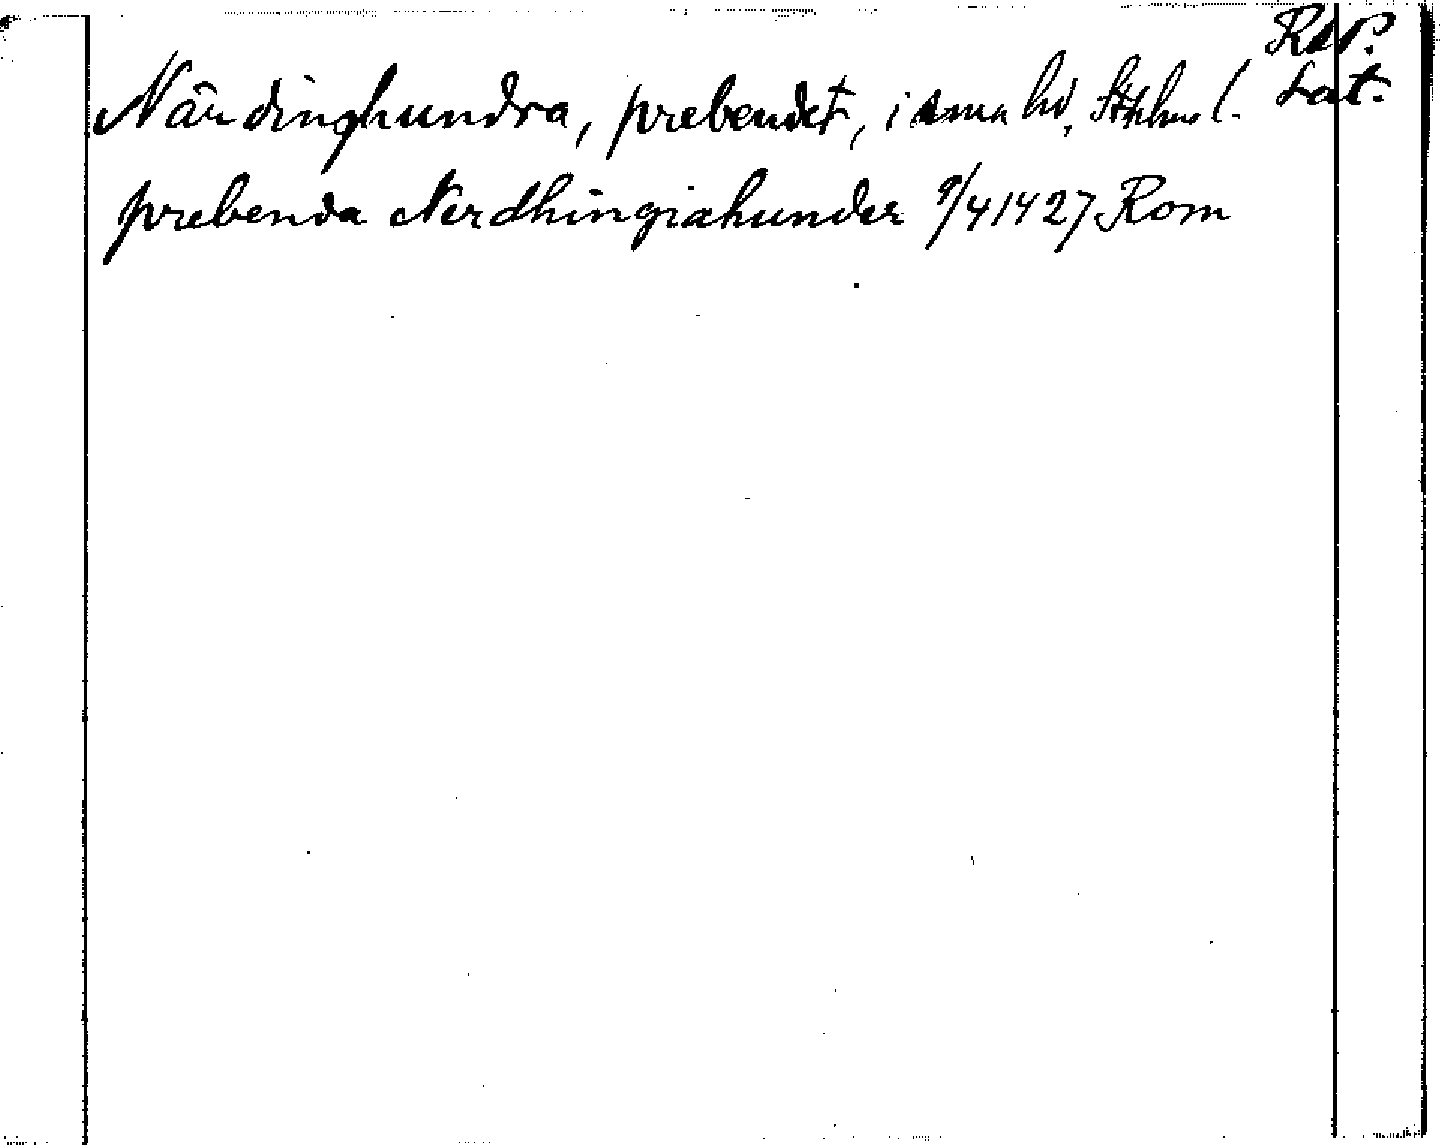 RAP.
Lat.
Närdinghundra, prebendet, i sma hd, Sthlms l.
prebenda Nerdhingiahunder 9/4 1427 Rom